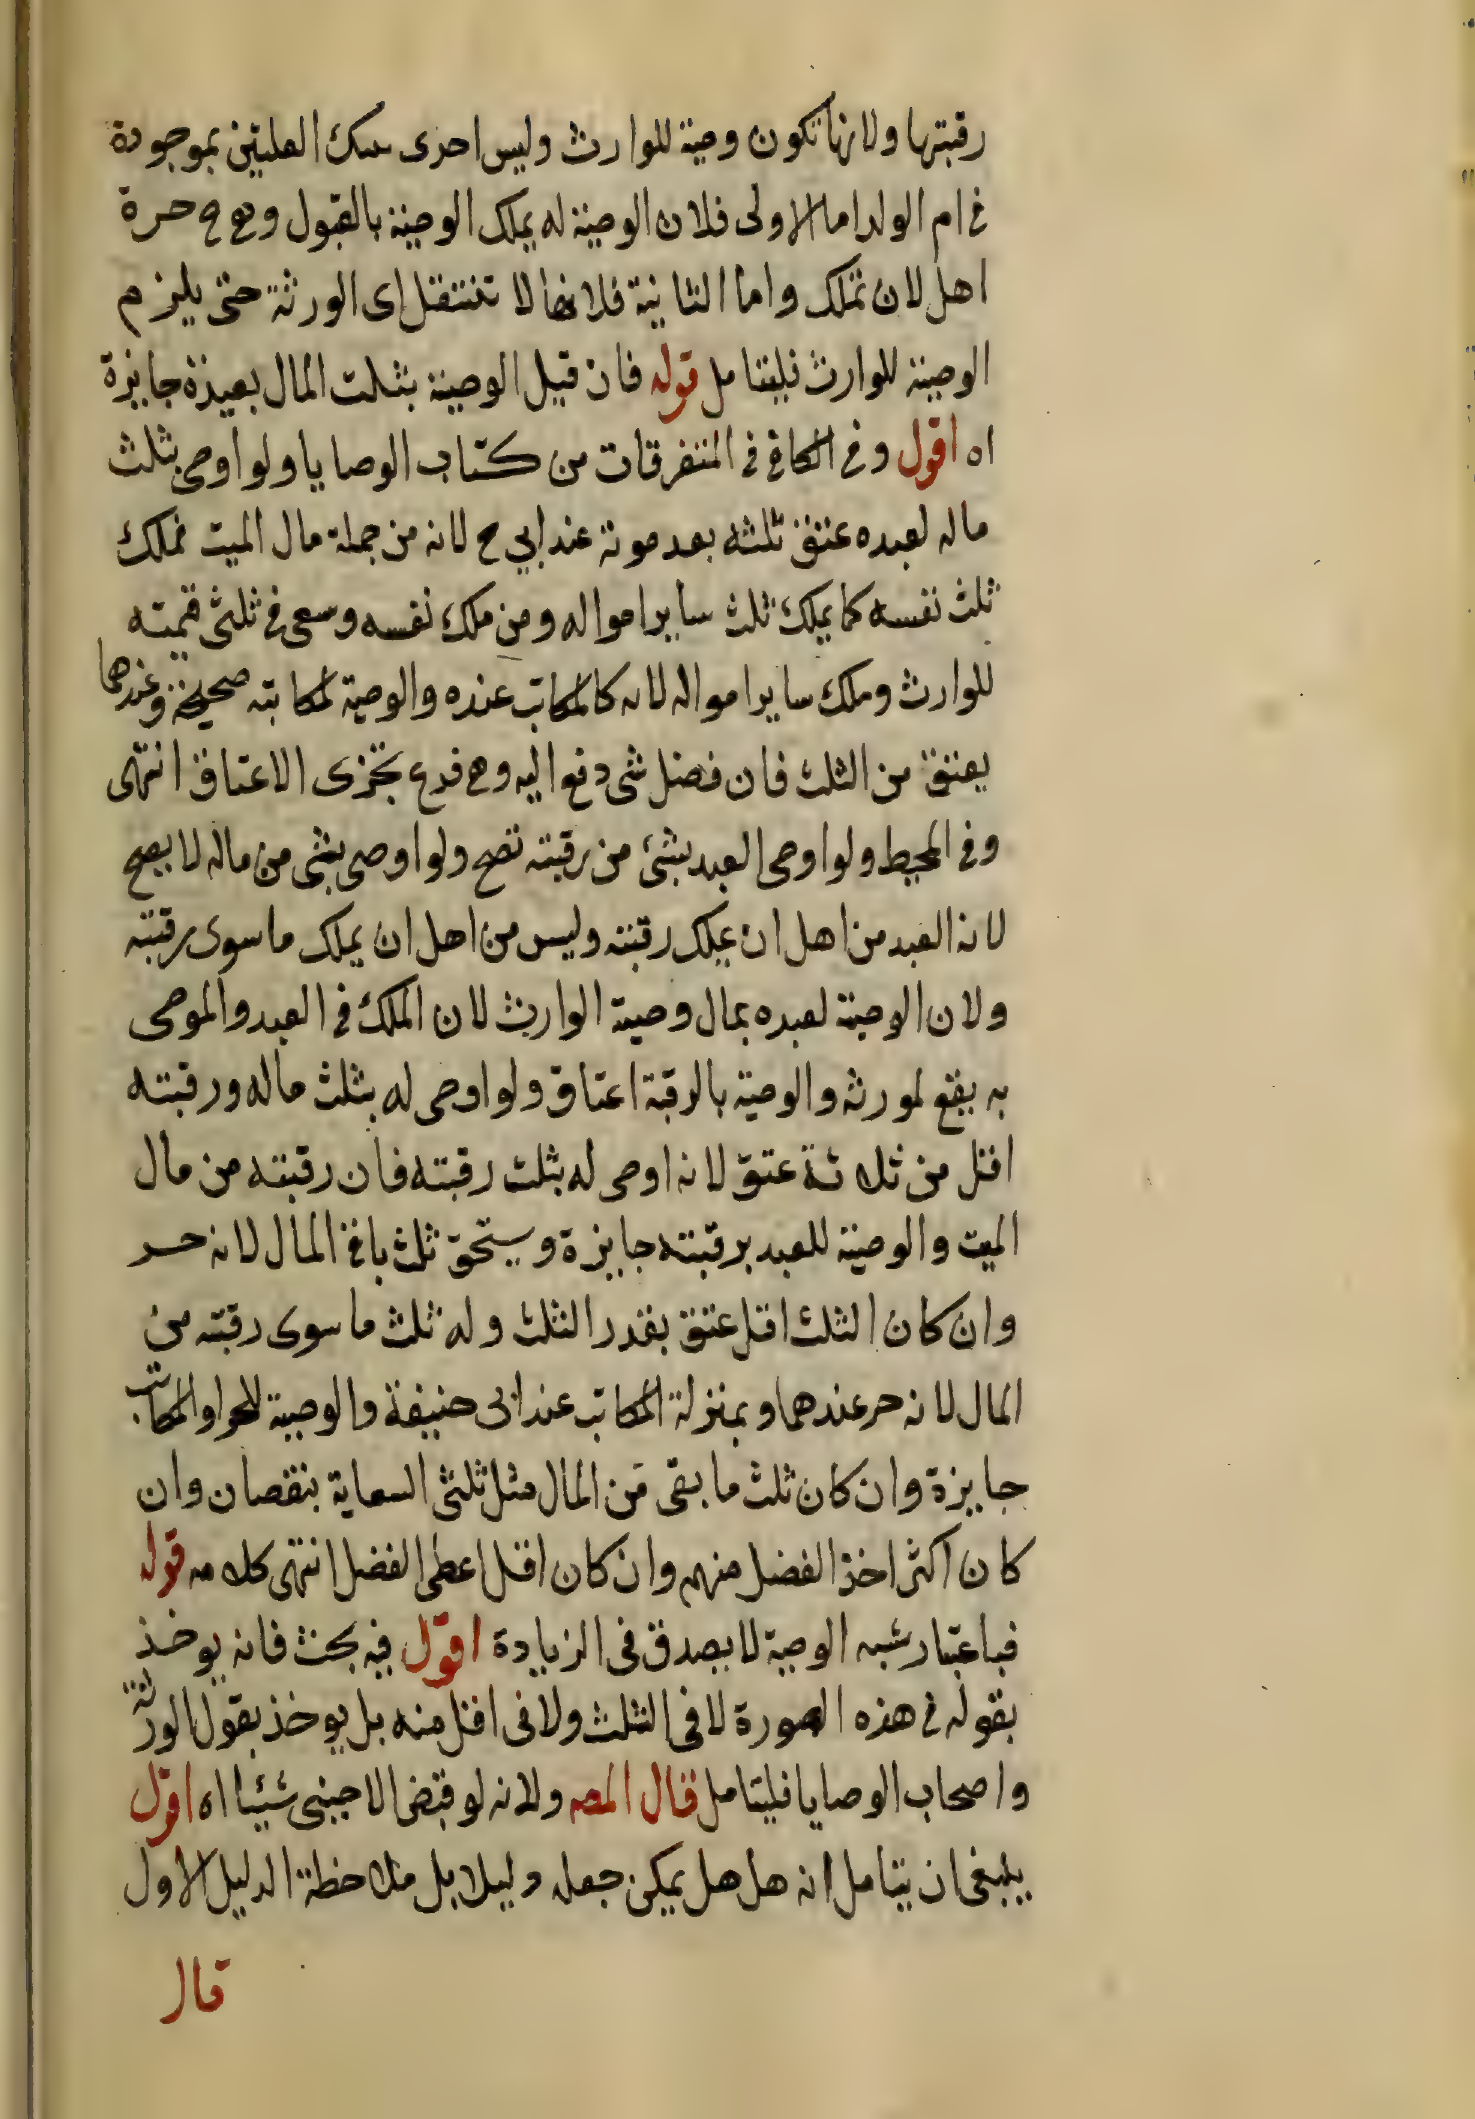 رقبتها ولانها تكون وصية للوارث وليس احدى تينك العلتين بموجودة
في ام الولد اما الاولى فلان الوصية له يملك الوصية بالقبول وهو ح حرة
اهل لان تملك واما الثانية فلانها لا تنتقل اى الورثة حتى يلزم
الوصية للوارث فليتامل قوله فان قيل الوصية بثلث المال بعيذة جايزة
اه اقول وفي الكافي في المتفرقات من كتاب الوصايا ولو اوصى بثلث
ماله لعبده عتق ثلثه بعد موته عند ابي ح لانه من جملة مال الميت فملك
ثلث نفسه كما يملك ثلث ساير امواله ومن ملك نفسه وسعى في ثلثى قيمته
للوارث وملك ساير امواله لانه كالمكاتب عنده والوصية لمكاتبه صحيحة وعندهما
يعتق من الثلث فان فضل شى دفع اليه وهى فرع تجزى الاعتاق انتهى
وفي المحيط ولو اوصى العبد بشئ من رقبته تصح ولو اوصى بشى من ماله لا يصح
لانه العبد من اهل ان يملك رقبته وليس من اهل ان يملك ما سوى رقبته
ولان الوصية لعبده بمال وصية الوارث لان الملك في العبد والموصى
به يقع لمورثه والوصية بالرقبة اعتاق ولو اوصى له بثلث ماله ورقبته
اقل من ثلاثة عتق لانه اوصى له بثلث رقبته فان رقبته من مال
الميت والوصية للعبد برقبته جايزة ويستحق ثلث باقي المال لانه حر
وان كان الثلث اقل عتق بقدر الثلث وله ثلث ما سوى رقبته من
المال لانه حر عندهما وبمنزلة المكاتب عند ابى حنيفة والوصية للحر او المكاتب
جايزة وان كان ثلث ما بقى من المال مثل ثلثى السعاية بنقصان وان
كان اكثر اخذ الفضل منهم وان كان اقل اعطى الفضل انتهى كلامه قوله
فباعتبار شبه الوصية لا يصدق فى الزيادة اقول فيه بحث فانه يوخذ
بقوله في هذه الصورة لا في الثلث ولا فى اقل منه بل يوخذ بقول الورثة
واصحاب الوصايا فليتامل قال المصه ولانه لو قبض الاجنبى شيئا اه اقول
ينبغى ان يتامل انه هل هل يمكن جعله دليلا بل ملاحظة الدليل الاول
قال